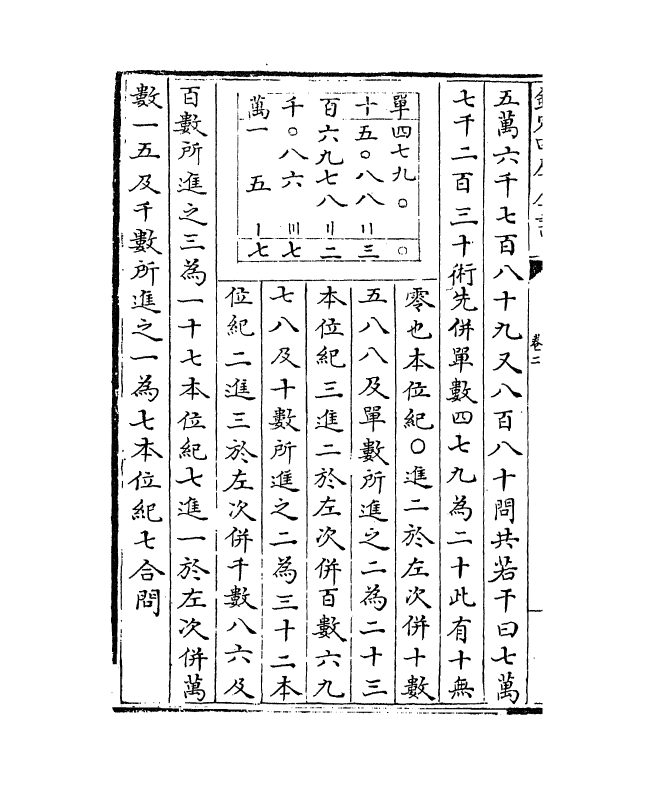 欽定四庫全書
卷二
五萬六千七百八十九又八百八十問共若干曰七萬
七千二百三十術先併單數四七九為二十此有十無
單四七九〇 〇
十五〇八八〢三
百六九七八〢二
千〇八六 〣七
萬一 五 〡七
零也本位紀〇進二於左次併十數
五八八及單數所進之二為二十三
本位紀三進二於左次併百數六九
七八及十數所進之二為三十二本
位紀二進三於左次併千數八六及
百數所進之三為一十七本位紀七進一於左次併萬
數一五及千數所進之一為七本位紀七合問